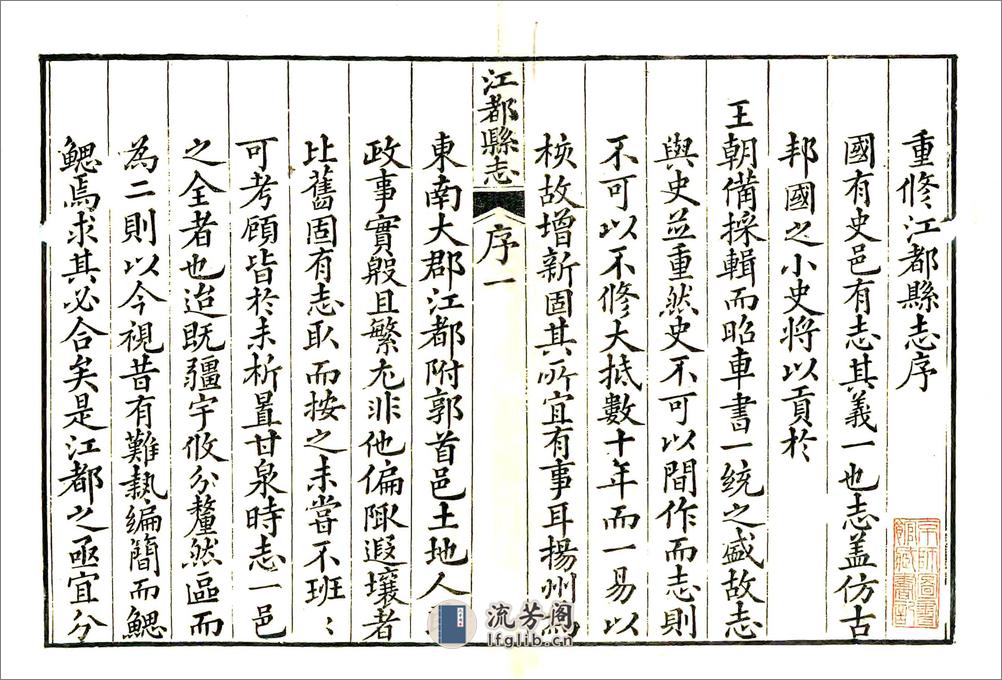 重修江都縣志序
國有史邑有志其義一也志盖仿古
邦國之小史将以貢於
王朝備採輯而昭車書一統之盛故志
與史並重然史不可以間作而志則
不可以不修大抵數十年而一易以
核故增新固其所宜有事耳揚州為
江都縣志
序一
東南大郡江都附郭首邑土地人
政事實殷且繁尤非他偏陬遐壤者
比舊固有志取而按之未嘗不班〻
可考顧皆於未析置甘泉時志一邑
之全者也迨既疆宇攸分釐然區而
為二則以今視昔有難執編簡而鰓
鰓焉求其必合矣是江都之亟宜分
流芳阁
lfglib.cn